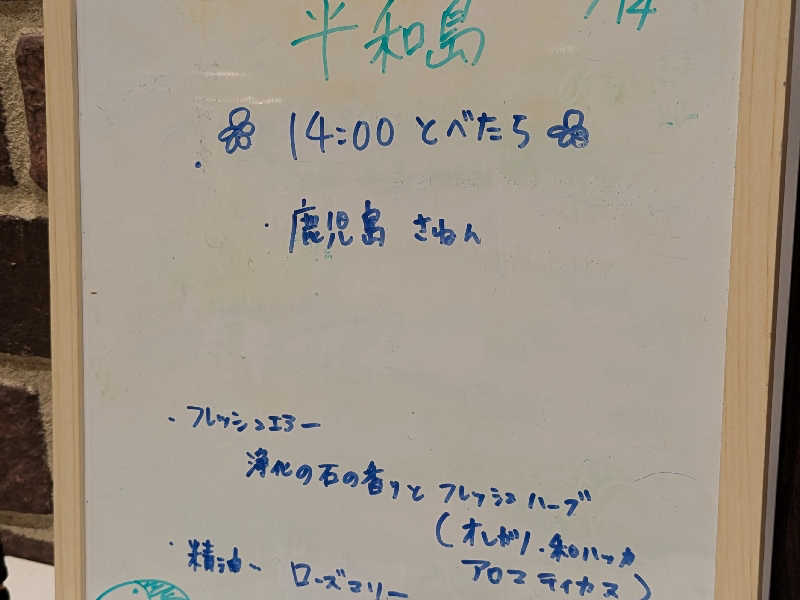 平和島 /14
14:00 とべたら
・鹿児島 さねん
・フレッシュエアー
浄化の石の香りと フレッシュハーブ
(オレガノ・和ハッカ
アロマティカス)
・精油ー ローズマリー